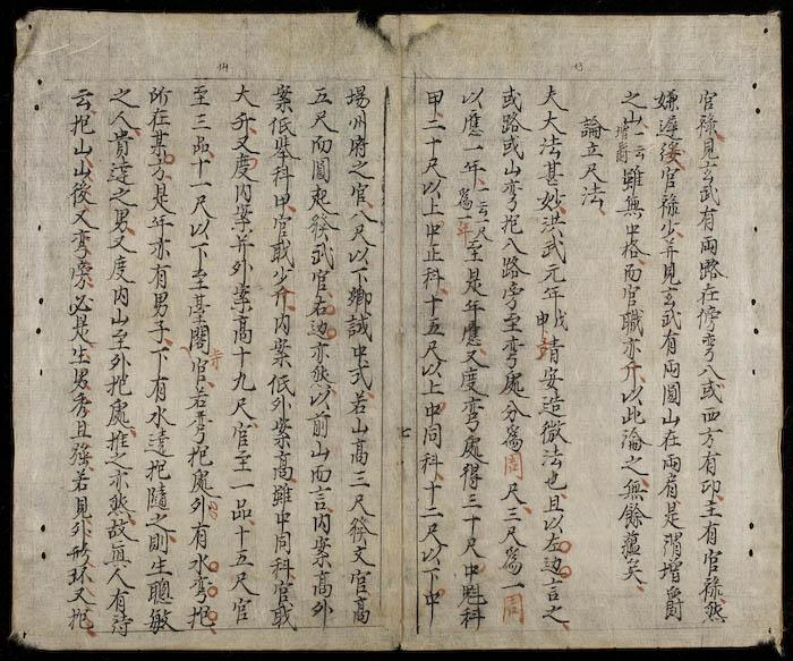 13
官祿見玄武有兩路在傍弯八或四方有印主有官祿然
嫌遲緩官祿少并見玄武有兩圓山在兩肩是謂增爵
之山一云增爵雖無中格而官職亦升以此論之無餘蘊矣
論立尺法
夫大法甚妙洪武元年戊申靖安造徵法也且以左边言之
或路或山弯抱入路旁至弯處分爲周尺三尺爲一周
以應一年一云一尺爲一年至是年應又度弯處得三十尺中魁科
甲二十尺以上中正科十五尺以上中同科十二尺以下中
七
14
場州府之官八尺以下鄉試中式若山高三尺發文官高
五尺而圓起發武官右边亦然以前山而言内案高外
案低舉科甲官戢少升内案低外案高雖中同科官戢
大升又度内案并外案高十九尺官至一品十五尺官
至三品十一尺以下至臺閣寺官若弯抱處外有水弯抱
所在某方是年亦有男子下有水遶抱隨之則生聰敏
之人貴達之男又度内山至外抱處推之亦然故眞人有詩
云抱山山後又弯旁必是生男秀且強若見外形环又抱